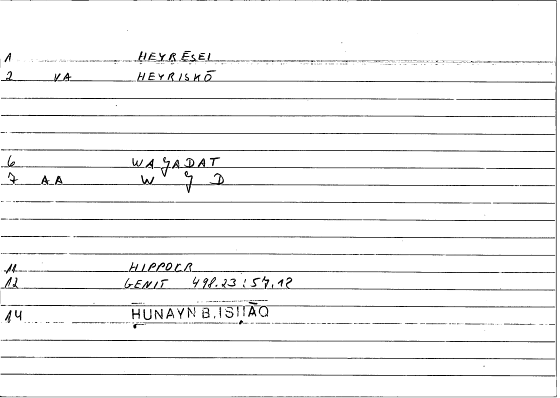 1 HEYRĒSEI
2 VA HEYRISKŌ
6 WAǦADAT
7 AA W Ǧ D
11 HIPPOCR
12 GENIT 498.23 : 54,12
14 HUNAYN B. ISḤĀQ